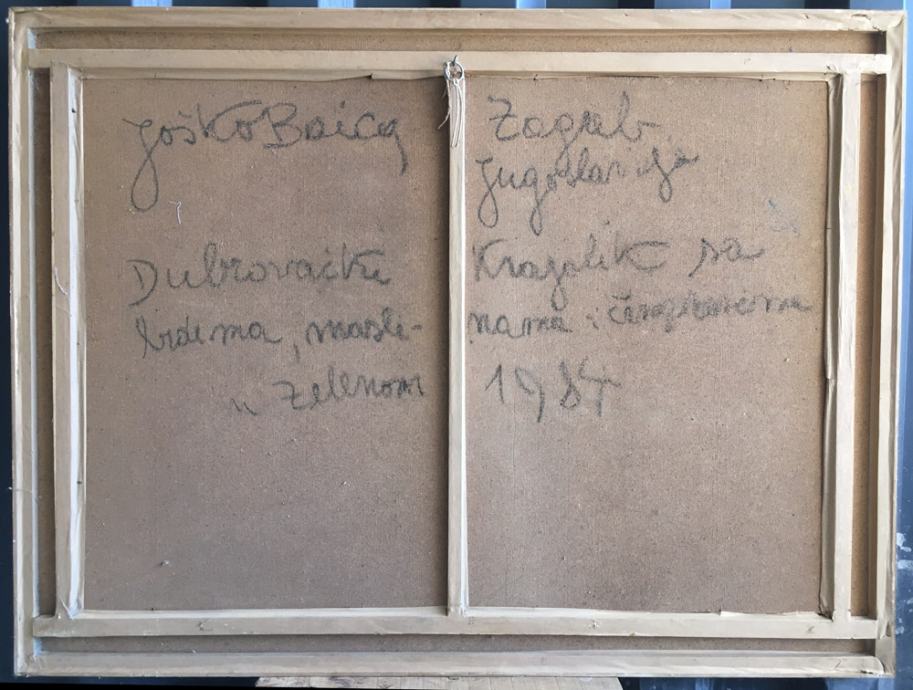 Joško Baica, Zagreb,
Jugoslavija
Dubrovački Krajolik sa
brdima, masli- nama i čempresima
u zelenom 1984